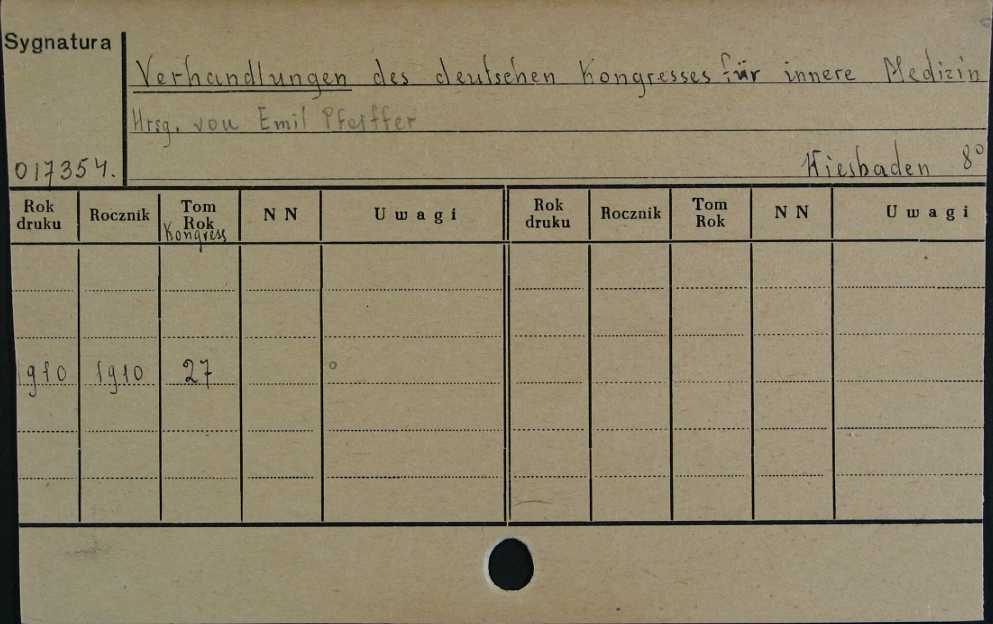 Sygnatura
Verhandlungen des deutschen Kongresses für innere Medizin
Hrsg. von Emil Pfeiffer
017354. Wiesbaden 8°
Rok druku Rocznik Tom Rok Kongress N N Uwagi Rok druku Rocznik Tom Rok N N Uwagi
1910 1910 27